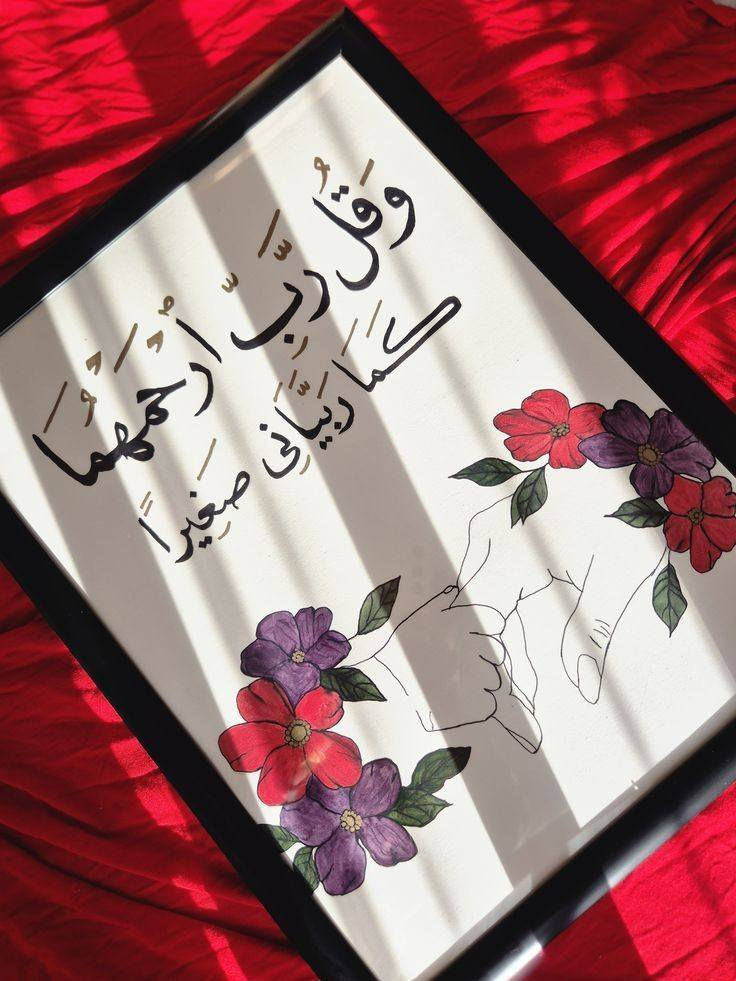 وَقُل رَّبِّ ٱرْحَمْهُمَا
كَمَا رَبَّيَانِى صَغِيرًا